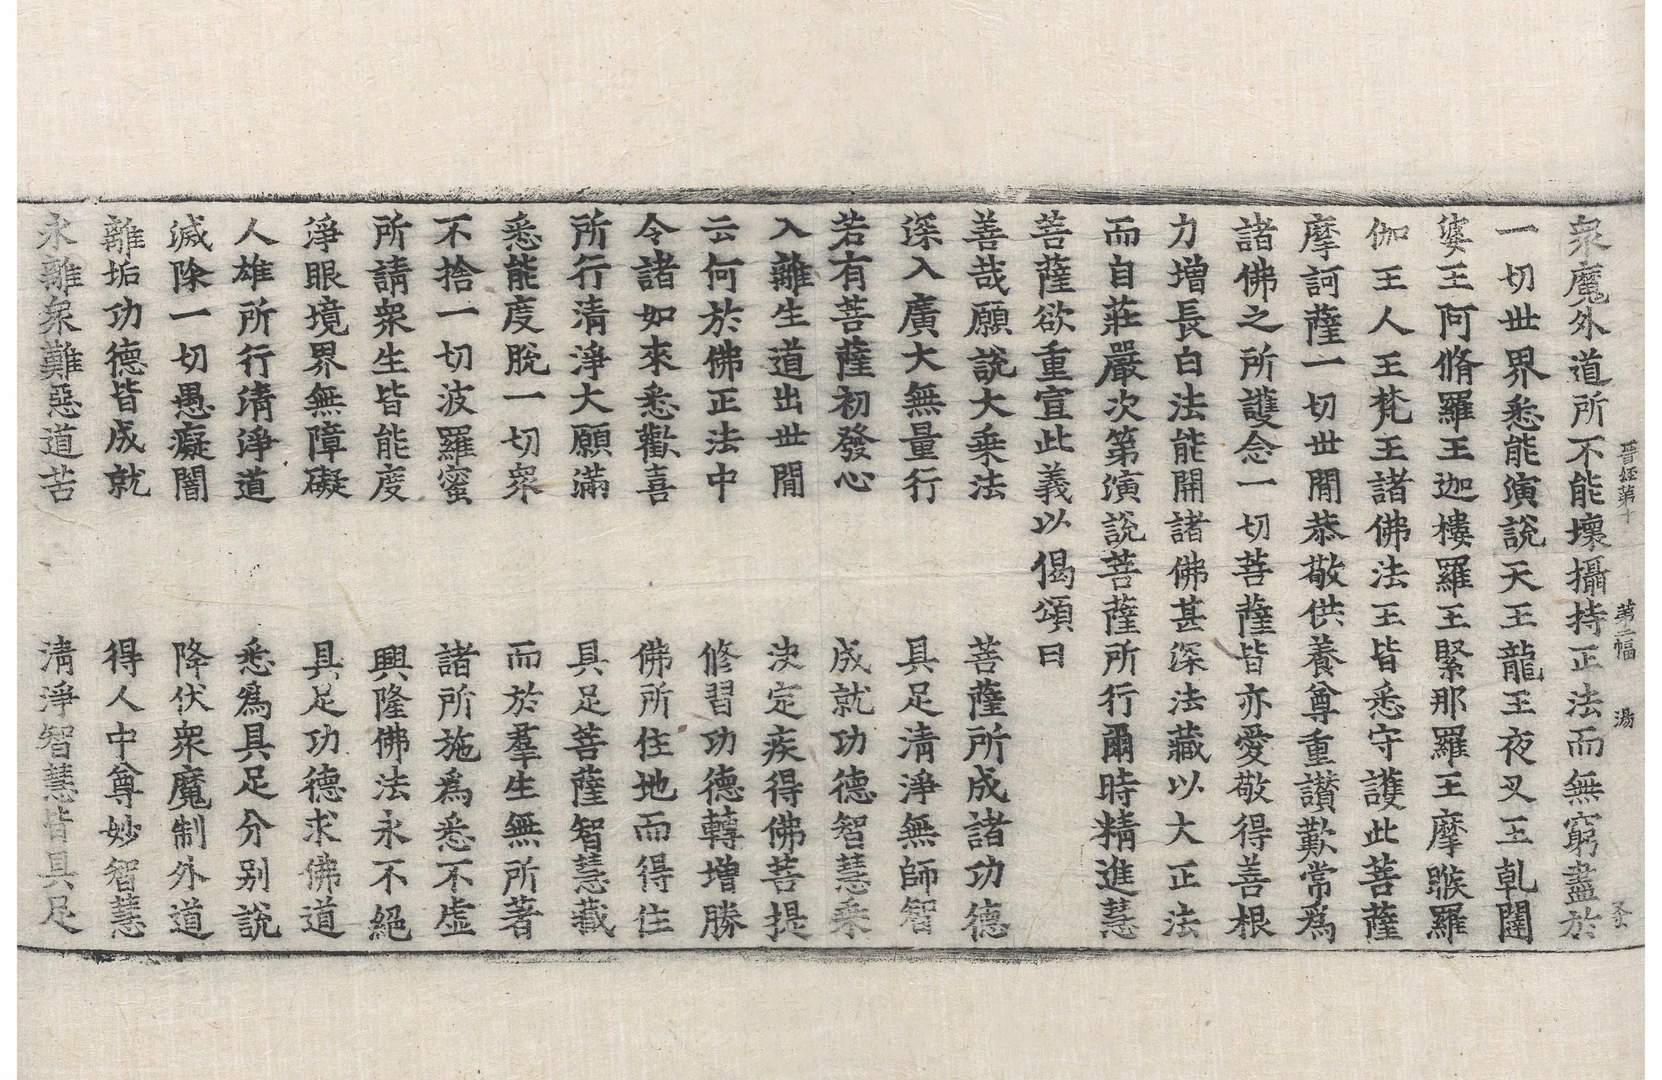 晉經第十 第二幅 湯
衆魔外道所不能壞攝持正法而無窮盡於
一切世界悉能演說天王龍王夜叉王乹闥
婆王阿脩羅王迦樓羅王緊那羅王摩睺羅
伽王人王梵王諸佛法王皆悉守護此菩薩
摩訶薩一切世閒恭敬供養尊重讃歎常爲
諸佛之所護念一切菩薩皆亦愛敬得善根
力增長白法能開諸佛甚深法藏以大正法
而自莊嚴次第演說菩薩所行爾時精進慧
菩薩欲重宣此義以偈頌曰
善哉願說大乗法 菩薩所成諸功德
深入廣大無量行 具足清淨無師智
若有菩薩初發心 成就功德智慧乗
入離生道出世閒 決定疾得佛菩提
云何於佛正法中 修習功德轉增勝
令諸如來悉歡喜 佛所住地而得住
所行清淨大願滿 具足菩薩智慧藏
悉能度脫一切衆 而於羣生無所著
不捨一切波羅蜜 諸所施爲悉不虛
所請衆生皆能度 興隆佛法永不絕
淨眼境界無障礙 具足功德求佛道
人雄所行清淨道 悉爲具足分别說
滅除一切愚癡闇 降伏衆魔制外道
離垢功德皆成就 得人中尊妙智慧
永離衆難惡道苦 清淨智慧皆具足